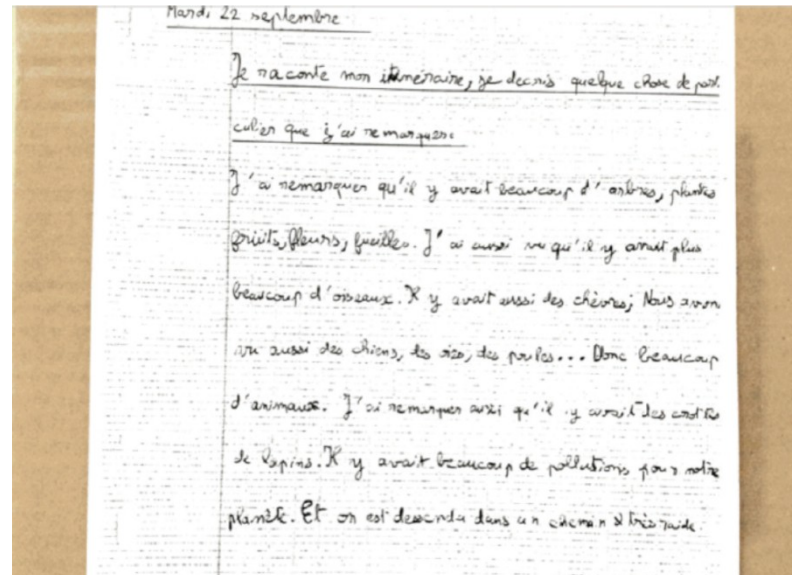 Mardi 22 septembre
Je raconte mon itinéraire, je decris quelque chose de parti
culier que j'ai remarquer:
J'ai remarquer qu'il y avait beaucoup d'arbres, plantes
fruits, fleurs, fueilles. J'ai aussi vu qu'il y avait plus
beaucoup d'oiseaux. Il y avait aussi des chèvres; Nous avon
vu aussi des chiens, des oies, des poules... Donc beaucoup
d'animaux. J'ai remarquer aussi qu'il y avait des crottes
de lapins. Il y avait beaucoup de pollutions pour notre
planète. Et on est descendu dans un chemin très raide.